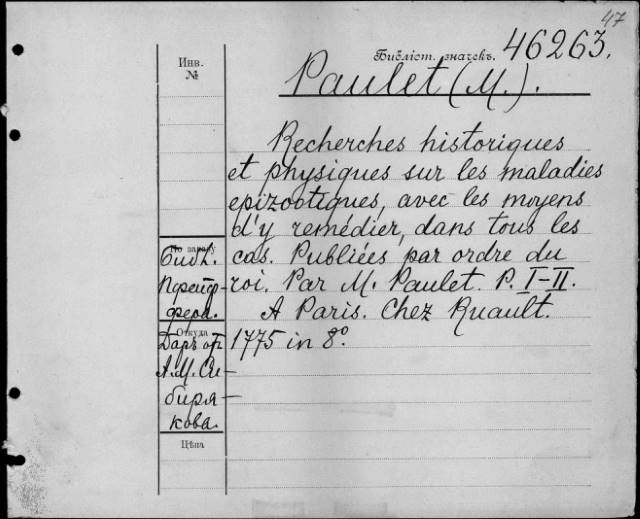 47
Библіот. значекъ. 46263.
Инв.
№
Paulet (M.).
Recherches historiques
et physiques sur les maladies
epizootiques, avec les moyens
d'y remédier, dans tous les
cas. Publiées par ordre du
roi. Par M. Paulet. P. I–II.
A Paris. Chez Ruault.
1775 in 8º.
По заказу
Библ.
Пфейф-
фера.
Откуда
Даръ от
А. М. Си-
биря-
кова.
Цѣна